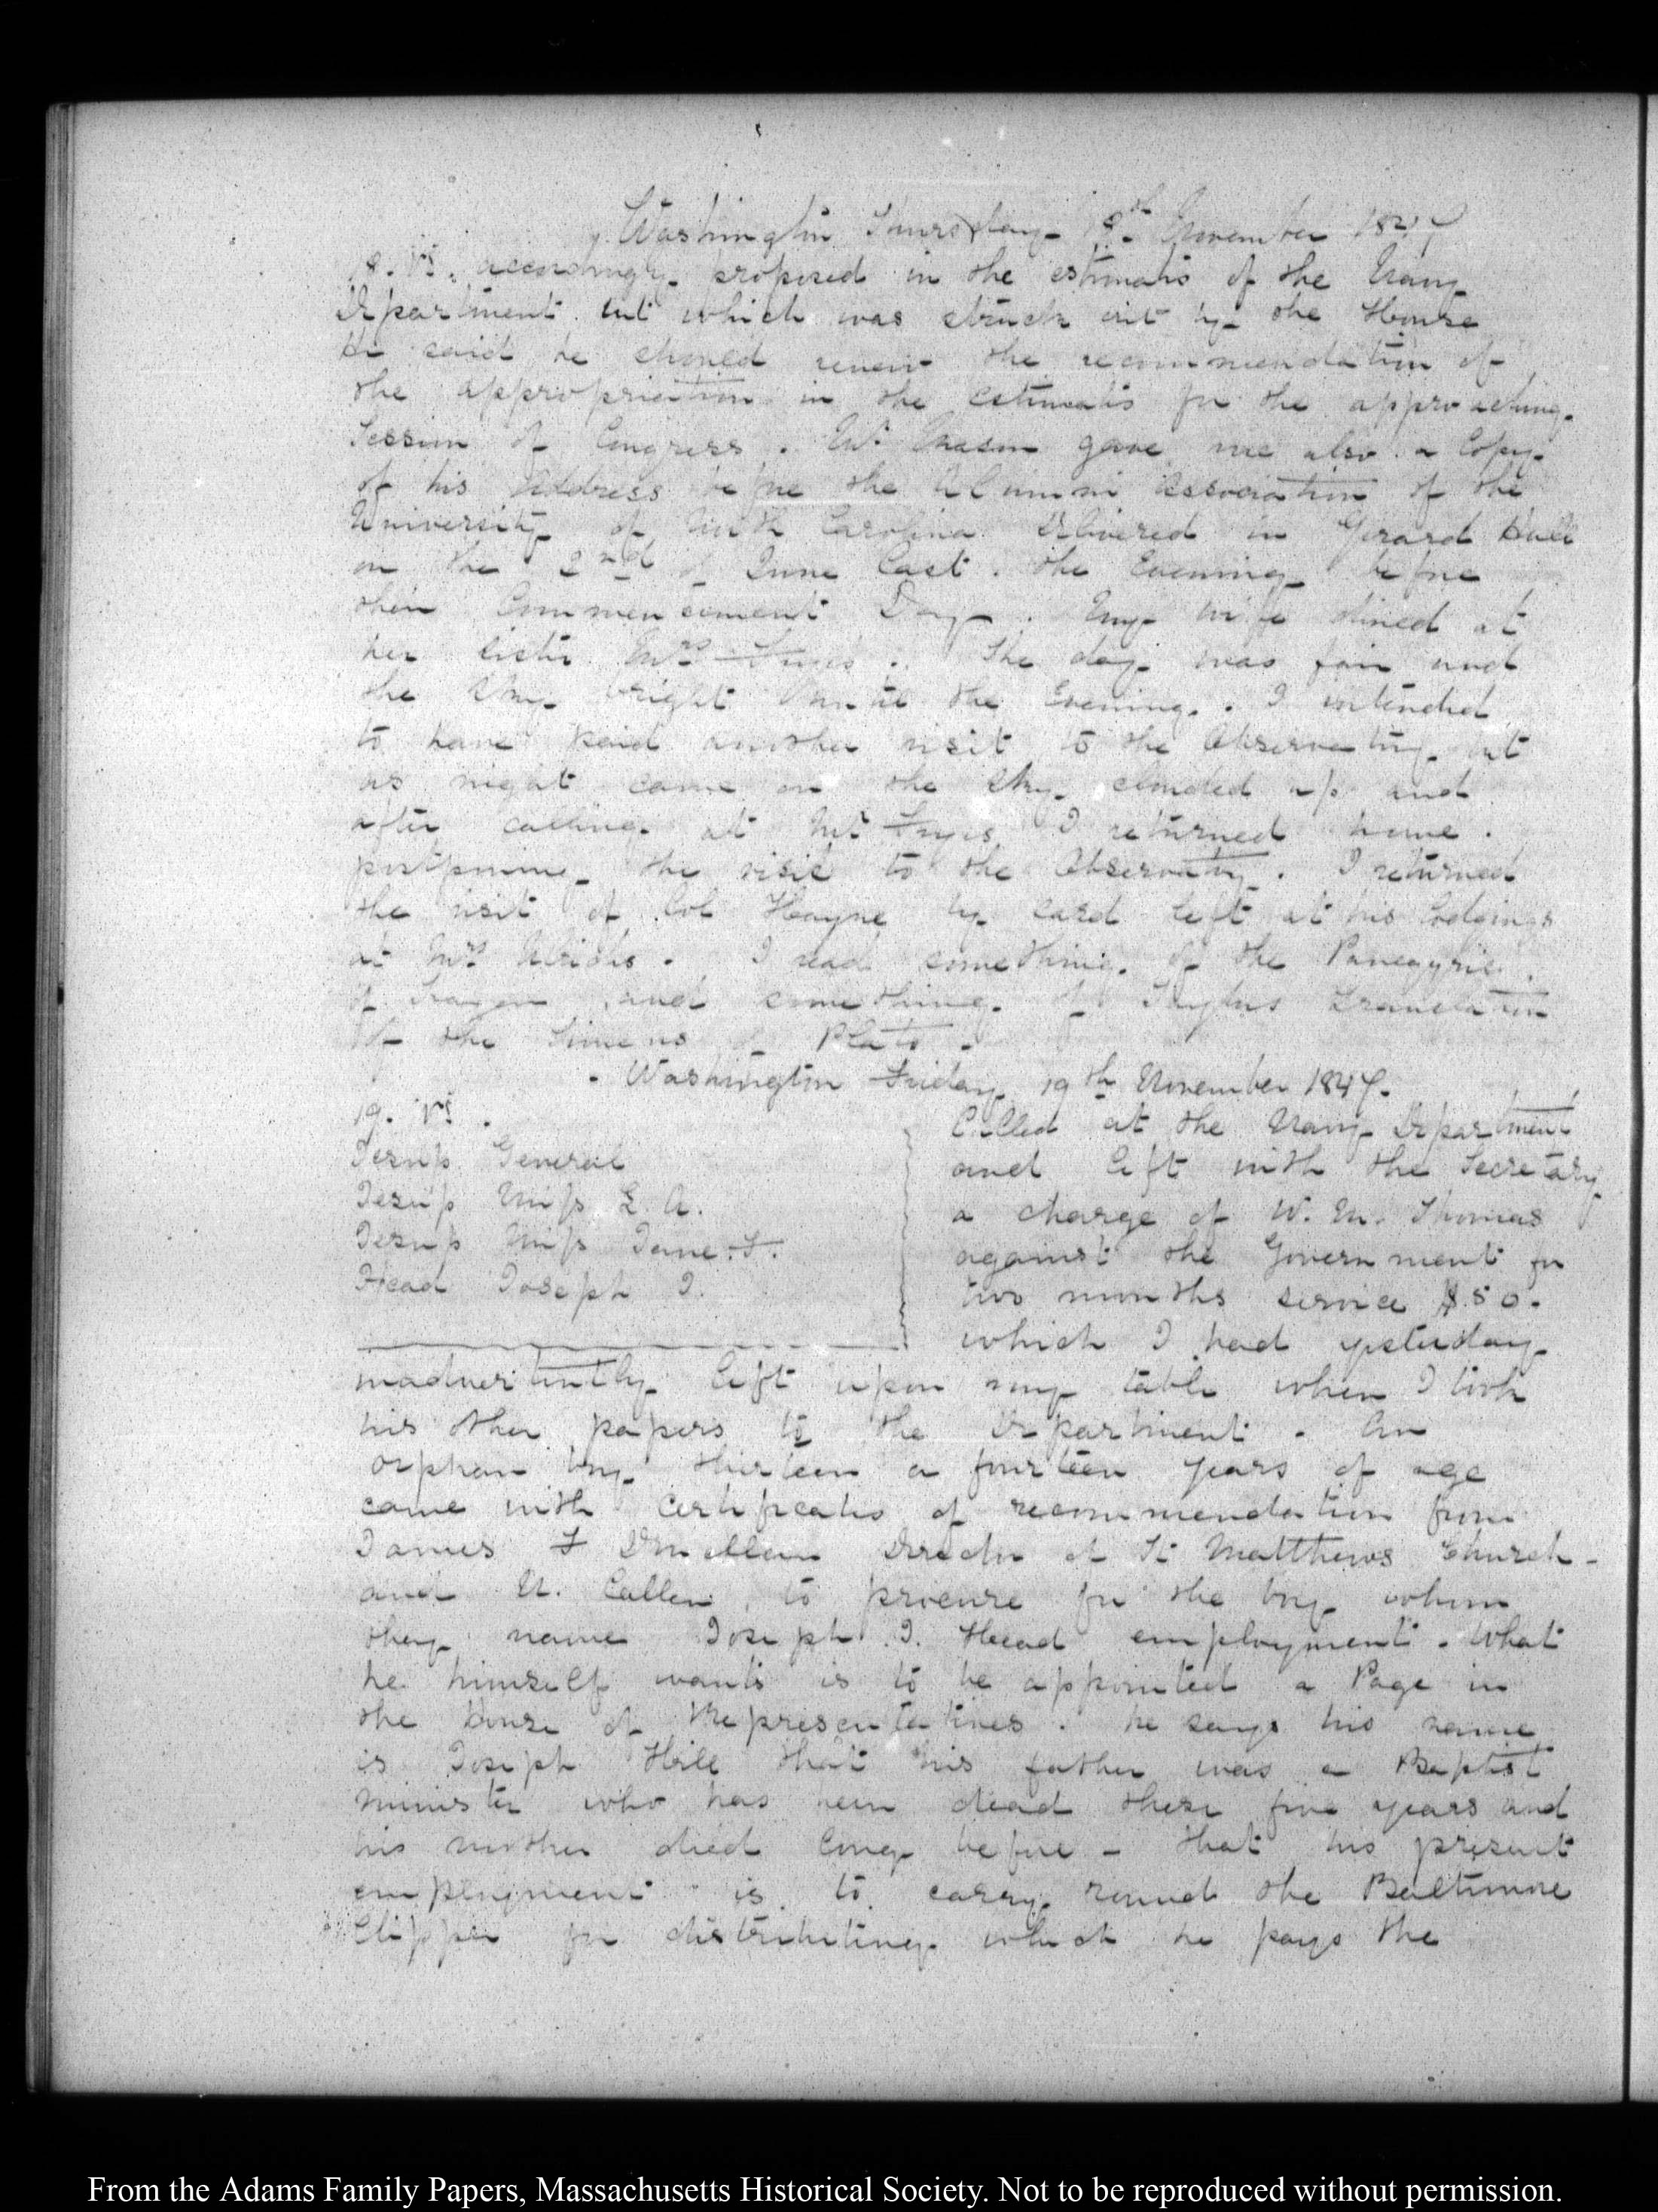 Washington Thursday 18th November 1847
18. VI. accordingly proposed in the estimates of the Navy
Department but which was struck out by the House
He said he should renew the recommendation of
the appropriation in the estimates for the approaching
Session of Congress. Mr. Mason gave me also a Copy
of his Address before the Alumni Association of the
University of North Carolina delivered in Gerard Hall
on the 2nd of June last. the Evening before
their Commencement Day. My wife dined at
her sister Mrs Frye's. The day was fair and
the sky bright until the Evening. I intended
to have paid another visit to the Observatory but
as night came on the sky clouded up and
after calling at Mr Frye's I returned home.
postponing the visit to the Observatory. I returned
the visit of Col Hayne by card left at his lodgings
at Mrs . I read something of the Panegyric
of Trajan and something of Taylors translation
of the Timeus of Plato.
Washington Friday 19th November 1847.
19. VI.
Jesup General
Jesup Miss L. A.
Jesup Miss Jane F.
Head Joseph I.
Called at the Navy Department
and left with the Secretary
a charge of W. M. Thomas
against the Government for
two months service $.50.
which I had yesterday
inadvertently left upon my table when I took
his other papers to the Department. An
orphan boy thirteen or fourteen years of age
came with certificates of recommendation from
James F Director of St Matthews Church
and N. Callen, to procure for the boy whom
they name Joseph I. Head employment. What
he himself wants is to be appointed a Page in
the House of Representatives. he says his name
is Joseph Hill that his father was a Baptist
minister who has been dead these five years and
his mother died long before - that his present
employment is to carry round the Baltimore
Clipper for distributing which he pays the
From the Adams Family Papers, Massachusetts Historical Society. Not to be reproduced without permission.